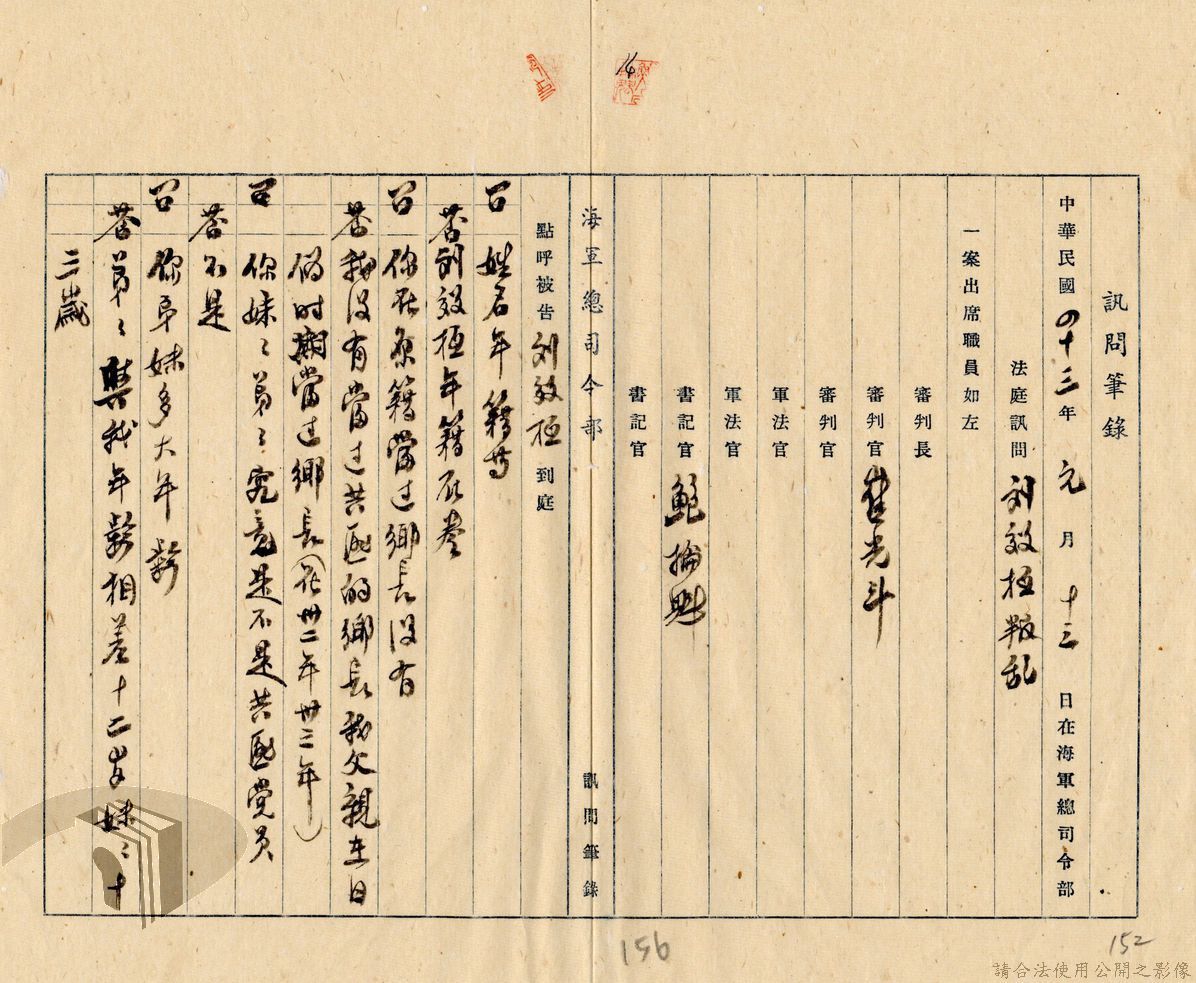 訊問筆錄
中華民國四十三年元月十三日在海軍總司令部
法庭訊問刘效極叛乱
一案出席職員如左
審判長
審判官崔光斗
審判官
軍法官
軍法官
書記官鮑掄
書記官
海軍總司令部 訊問筆錄
點呼被告刘效極到庭
問 姓名年籍等
答 刘效極年籍在卷
問 你在原籍當过鄉長沒有
答 我沒有當过共匪的鄉長我父親在日
偽時期當过鄉長(在卅二年卅三年)
問 你妹〻弟〻究竟是不是共匪党员
答 不是
問 你弟妹多大年齡
答 弟〻與我年齡相差十二岁妹〻十
三歲
14
156
152
請合法使用公開之影像